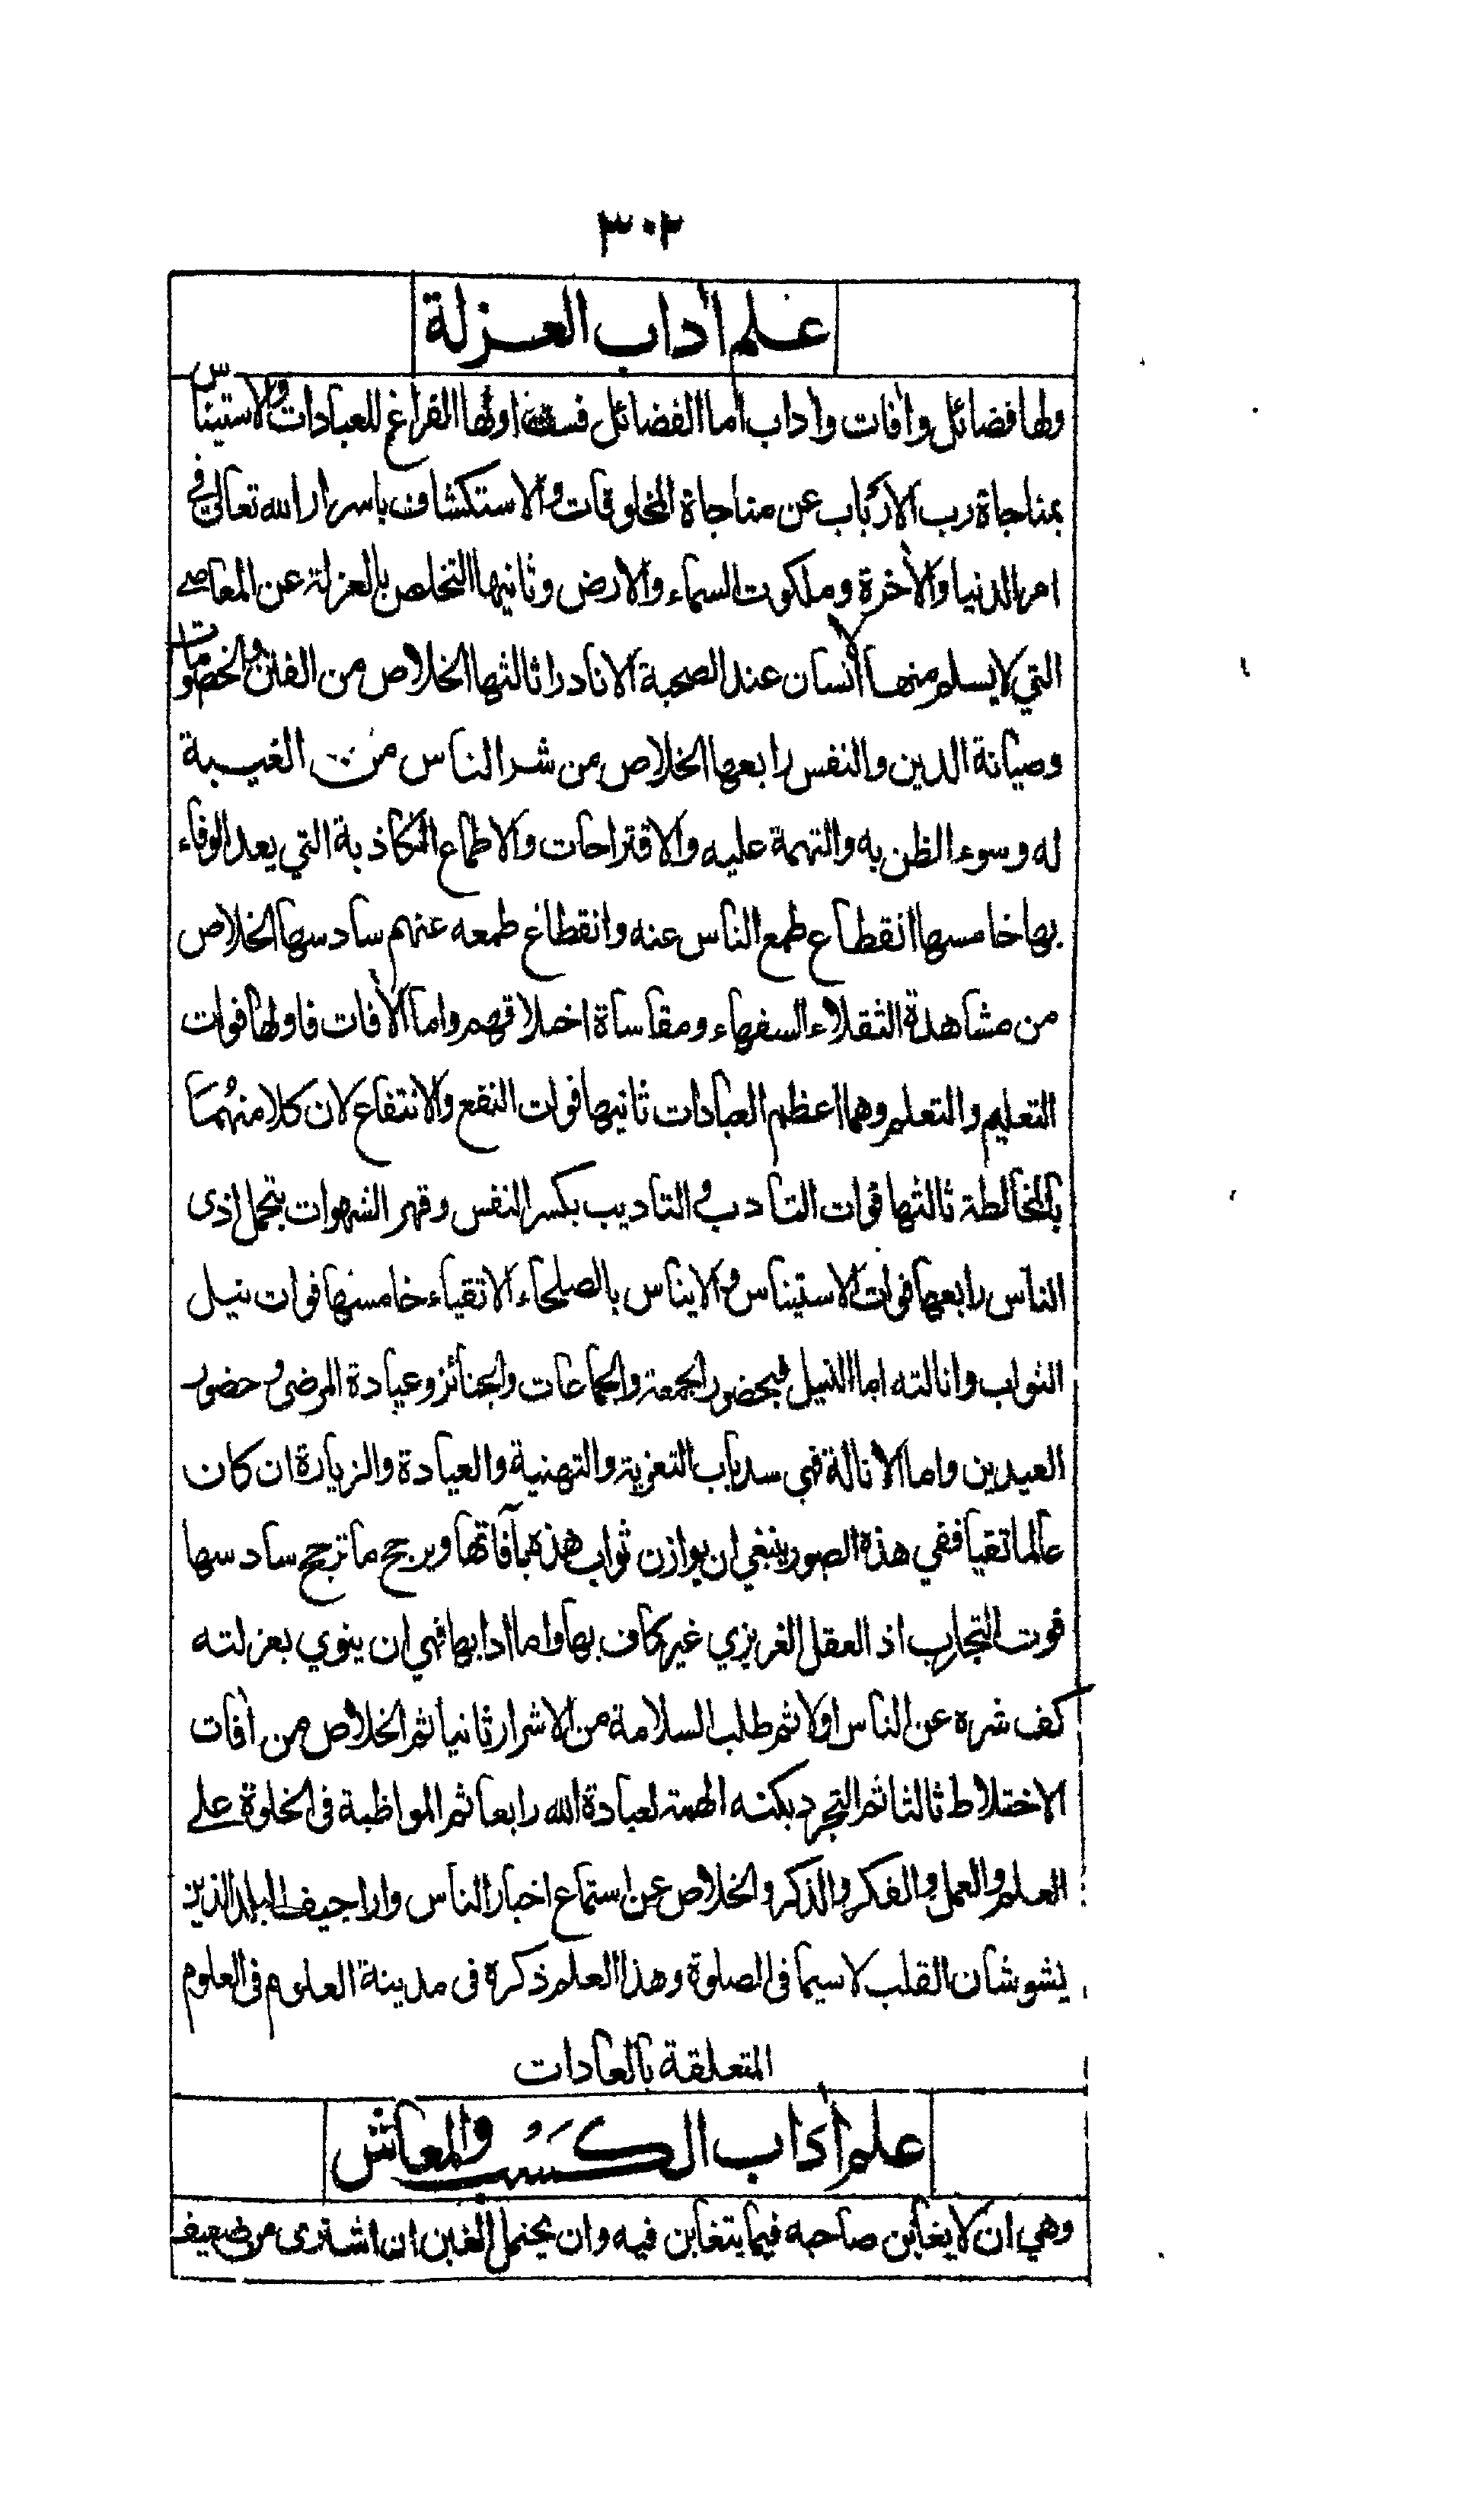 ٣٠٢
علم اٰداب العزلة
ولها فضائل واٰفات واٰداب اما الفضائل فستة اولها الفراغ للعبادات والاستيناس
بمناجاة رب الارباب عن مناجاة المخلوقات والاستكشاف باسرار الله تعالى في
امر الدنيا والاٰخرة وملكوت السماء والارض وثانيها التخلص بالعزلة عن المعاصي
التي لا يسلم منها الانسان عند الصحبة الا نادرا ثالثها الخلاص من الفتن والخصومات
وصيانة الدين والنفس رابعها الخلاص من شر الناس من الغيبة
له وسوء الظن به والتهمة عليه والاقتراحات والاطماع الكاذبة التي يعد الوفاء
بها خامسها انقطاع طمع الناس عنه وانقطاع طمعه عنهم سادسها الخلاص
من مشاهدة الثقلاء السفهاء ومقاساة اخلاقهم واما الاٰفات فاولها فوات
التعليم والتعلم وهما اعظم العبادات ثانيها فوات النفع والانتفاع لان كلا منهما
بالمخالطة ثالثها فوات التادب والتاديب بكسر النفس وقهر الشهوات بتحمل اذى
الناس رابعها فوات الاستيناس والايناس بالصلحاء الاتقياء خامسها فوات نيل
الثواب وانالته اما النيل فبحضور الجمعة والجماعات والجنائز وعيادة المرضى وحضور
العيدين واما الانالة فهي سد باب التعزية والتهنية والعيادة والزيارة ان كان
عالما تقيا ففي هذه الصور ينبغي ان يوازن ثواب هذه بآفاتها ويرجح ما ترجح سادسها
فوت التجارب اذ العقل الغريزي غير كاف بها واما ادابها فهي ان ينوي بعزلته
كف شره عن الناس اولا ثم طلب السلامة من الاشرار ثانيا ثم الخلاص من اٰفات
الاختلاط ثالثا ثم التجرد بكنه الهمة لعبادة الله رابعا ثم المواظبة فى الخلوة على
العلم والعمل والفكر والذكر والخلاص عن استماع اخبار الناس واراجيف البلد الذين
يشوشان القلب لا سيما فى الصلوة وهذا العلم ذكره فى مدينة العلوم فى العلوم
المتعلقة بالعادات
علم اٰداب الكَسْب والمعاش
وهي ان لا يغابن صاحبه فيما يتغابن فيه وان يحتمل الغبن ان اشترى من ضعيف